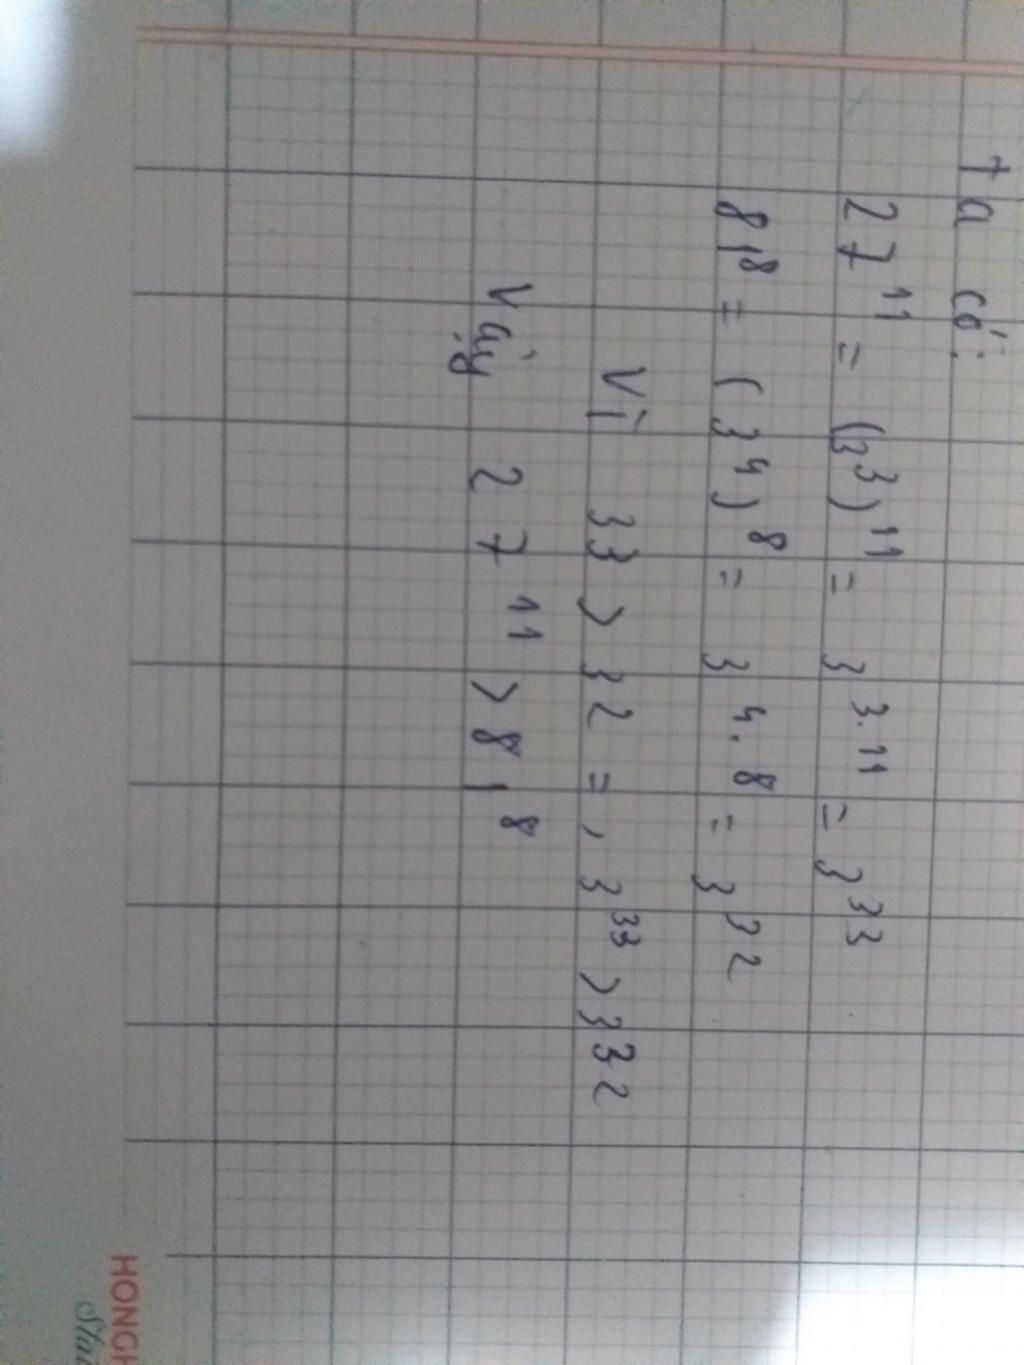 Ta có:
27¹¹ = (3³)¹¹ = 3³·¹¹ = 3³³
81⁸ = (3⁴)⁸ = 3⁴·⁸ = 3³²
Vì 33 > 32 =, 3³³ > 3³²
Vậy 27¹¹ > 81⁸